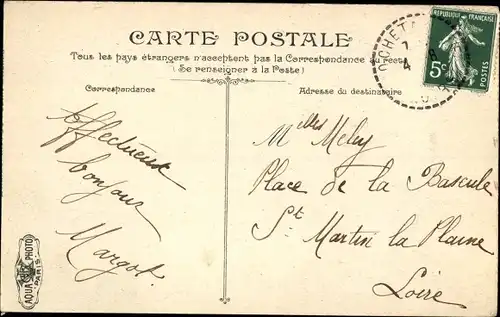 CARTE POSTALE
Tous les pays étrangers n'acceptent pas la Correspondance au recto
(Se renseigner à la Poste)
Correspondance
Adresse du destinataire
RÉPUBLIQUE FRANÇAISE
5c
POSTES
Affectueux
bonjour
Margot.
Milles Mely
Place de la Bascule
St Martin la Plaine
Loire
AQUA PHOTO
PARIS